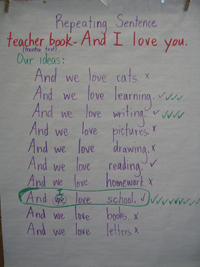 Repeating Sentence
teacher book - And I love you.
(mentor text)
Our ideas:
And we love cats. x
And we love learning. ✓✓✓
And we love writing. ✓✓✓
And we love pictures. x
And we love drawing. x
And we love reading. ✓
And we love homework x
I
And we love school. ✓ ✓✓✓✓✓✓✓
And we love books. x
And we love letters x